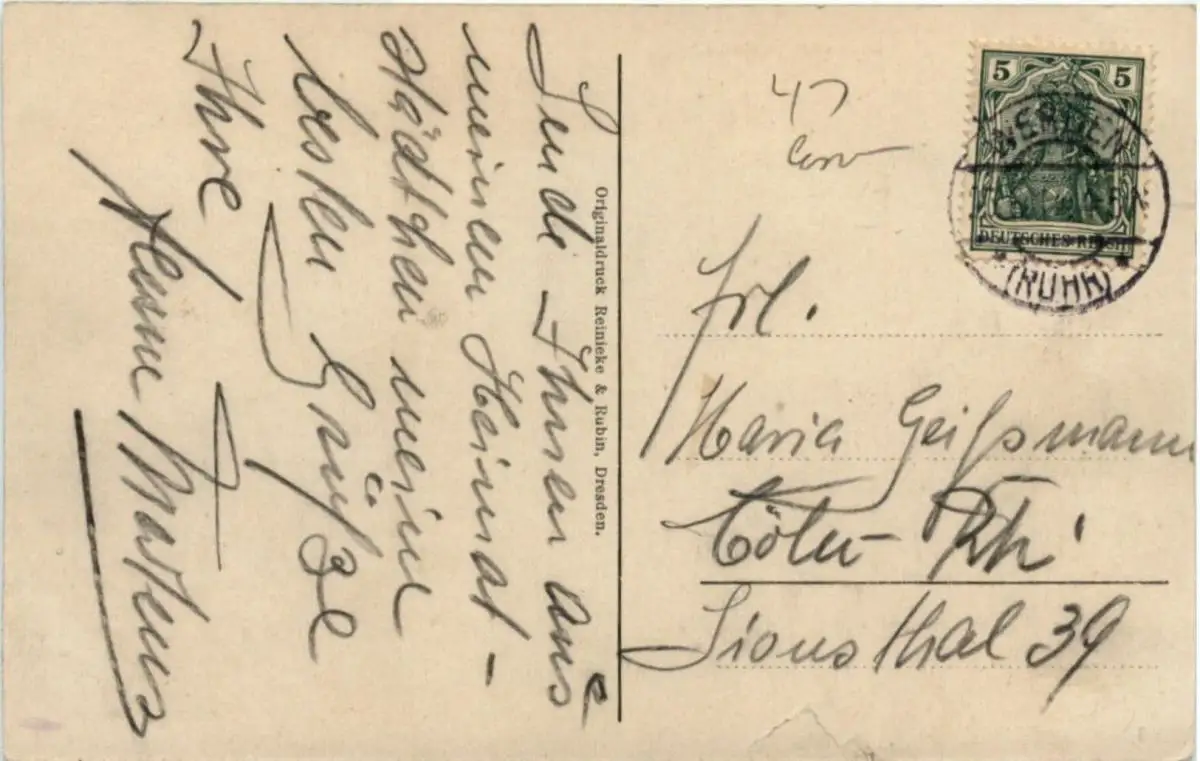 Sende Ihnen aus
meinem Heimat-
städtchen meine
besten Grüße
Ihre
Martens
Originaldruck Reinieke & Rubin, Dresden.
47
5 5
DEUTSCHES REICH
WERDEN
(RUHR)
Frl.
Maria Geißsmann
Cöln Rh.
Sionsthal 39